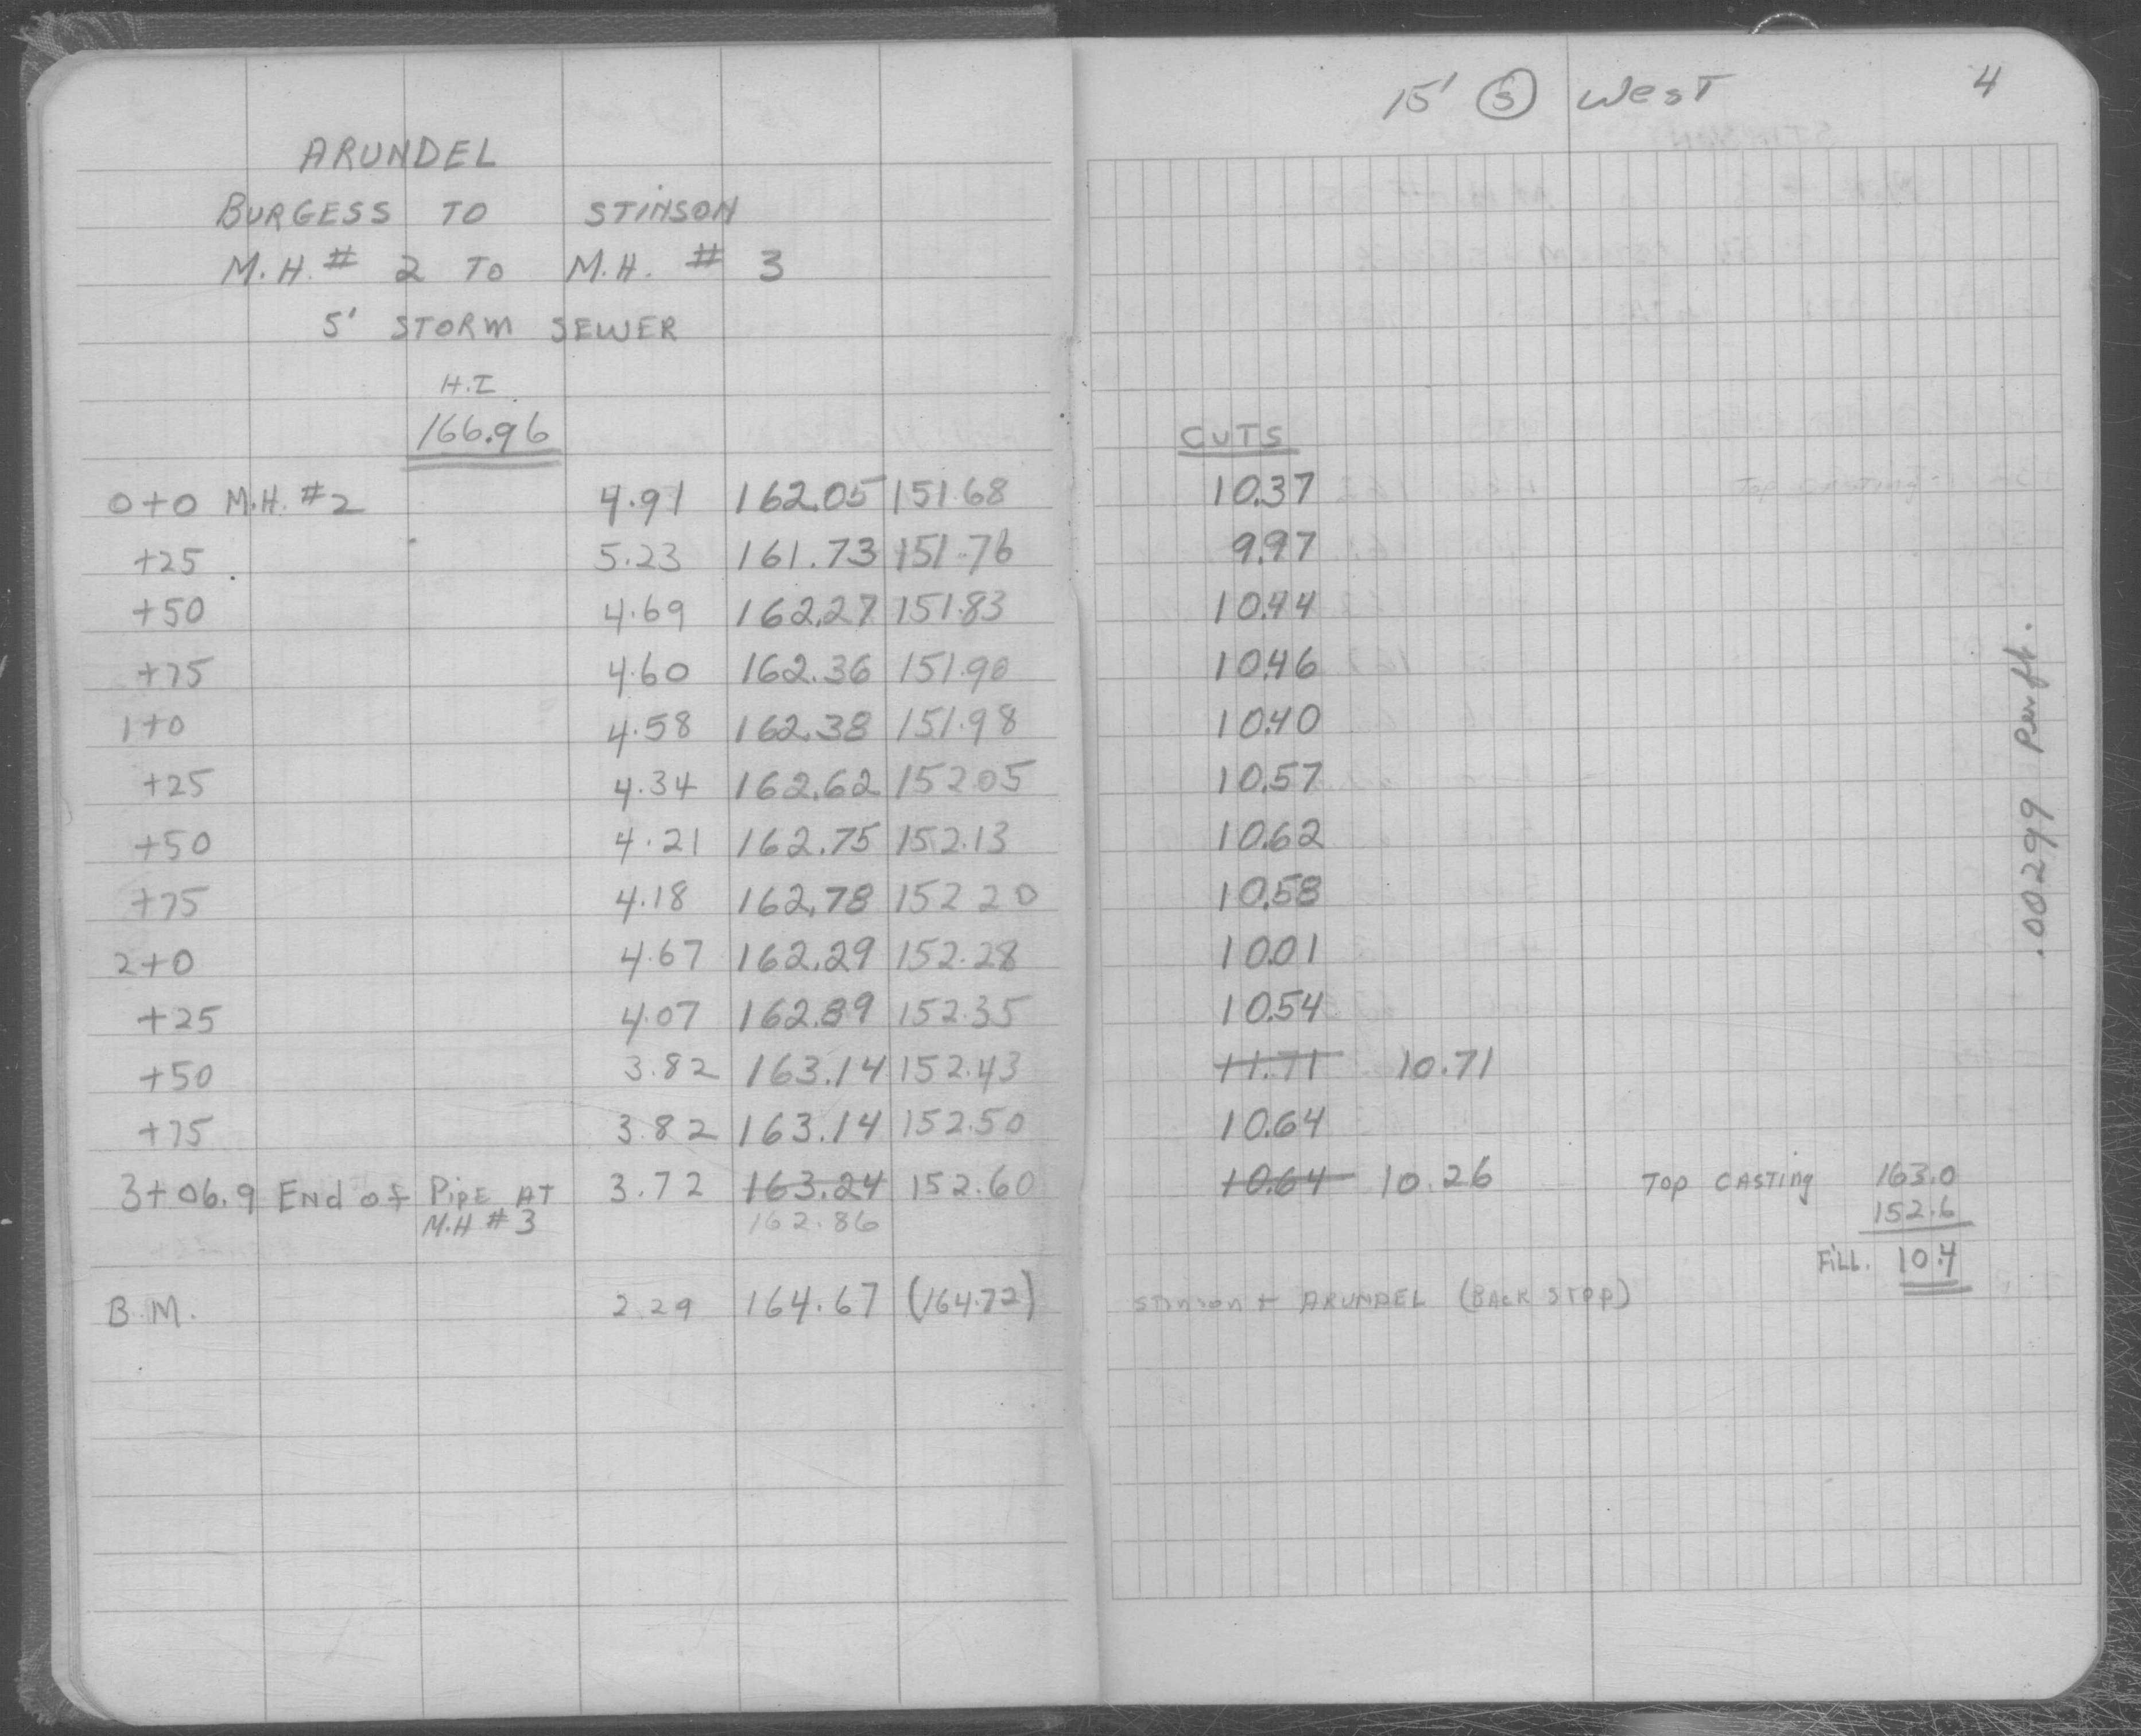 ARUNDEL
BURGESS TO STINSON
M.H. # 2 TO M.H. # 3
5' STORM SEWER
H.I
166.96
0+0 M.H. #2 4.91 162.05 151.68
+25 5.23 161.73 151.76
+50 4.69 162.27 151.83
+75 4.60 162.36 151.90
1+0 4.58 162.38 151.98
+25 4.34 162.62 152.05
+50 4.21 162.75 152.13
+75 4.18 162.78 152.20
2+0 4.67 162.29 152.28
+25 4.07 162.89 152.35
+50 3.82 163.14 152.43
+75 3.82 163.14 152.50
3+06.9 End of Pipe AT 3.72 163.24 152.60
M.H # 3 162.86
B.M. 2.29 164.67 (164.72)
15' S West 4
CUTS
10.37
9.97
10.44
10.46
10.40
10.57
10.62
10.58
10.01
10.54
11.71 10.71
10.64
10.64 10.26 Top CASTing 163.0
152.6
Fill. 10.4
Stinson + ARUNDEL (BACK STOP)
.00299 per ft.